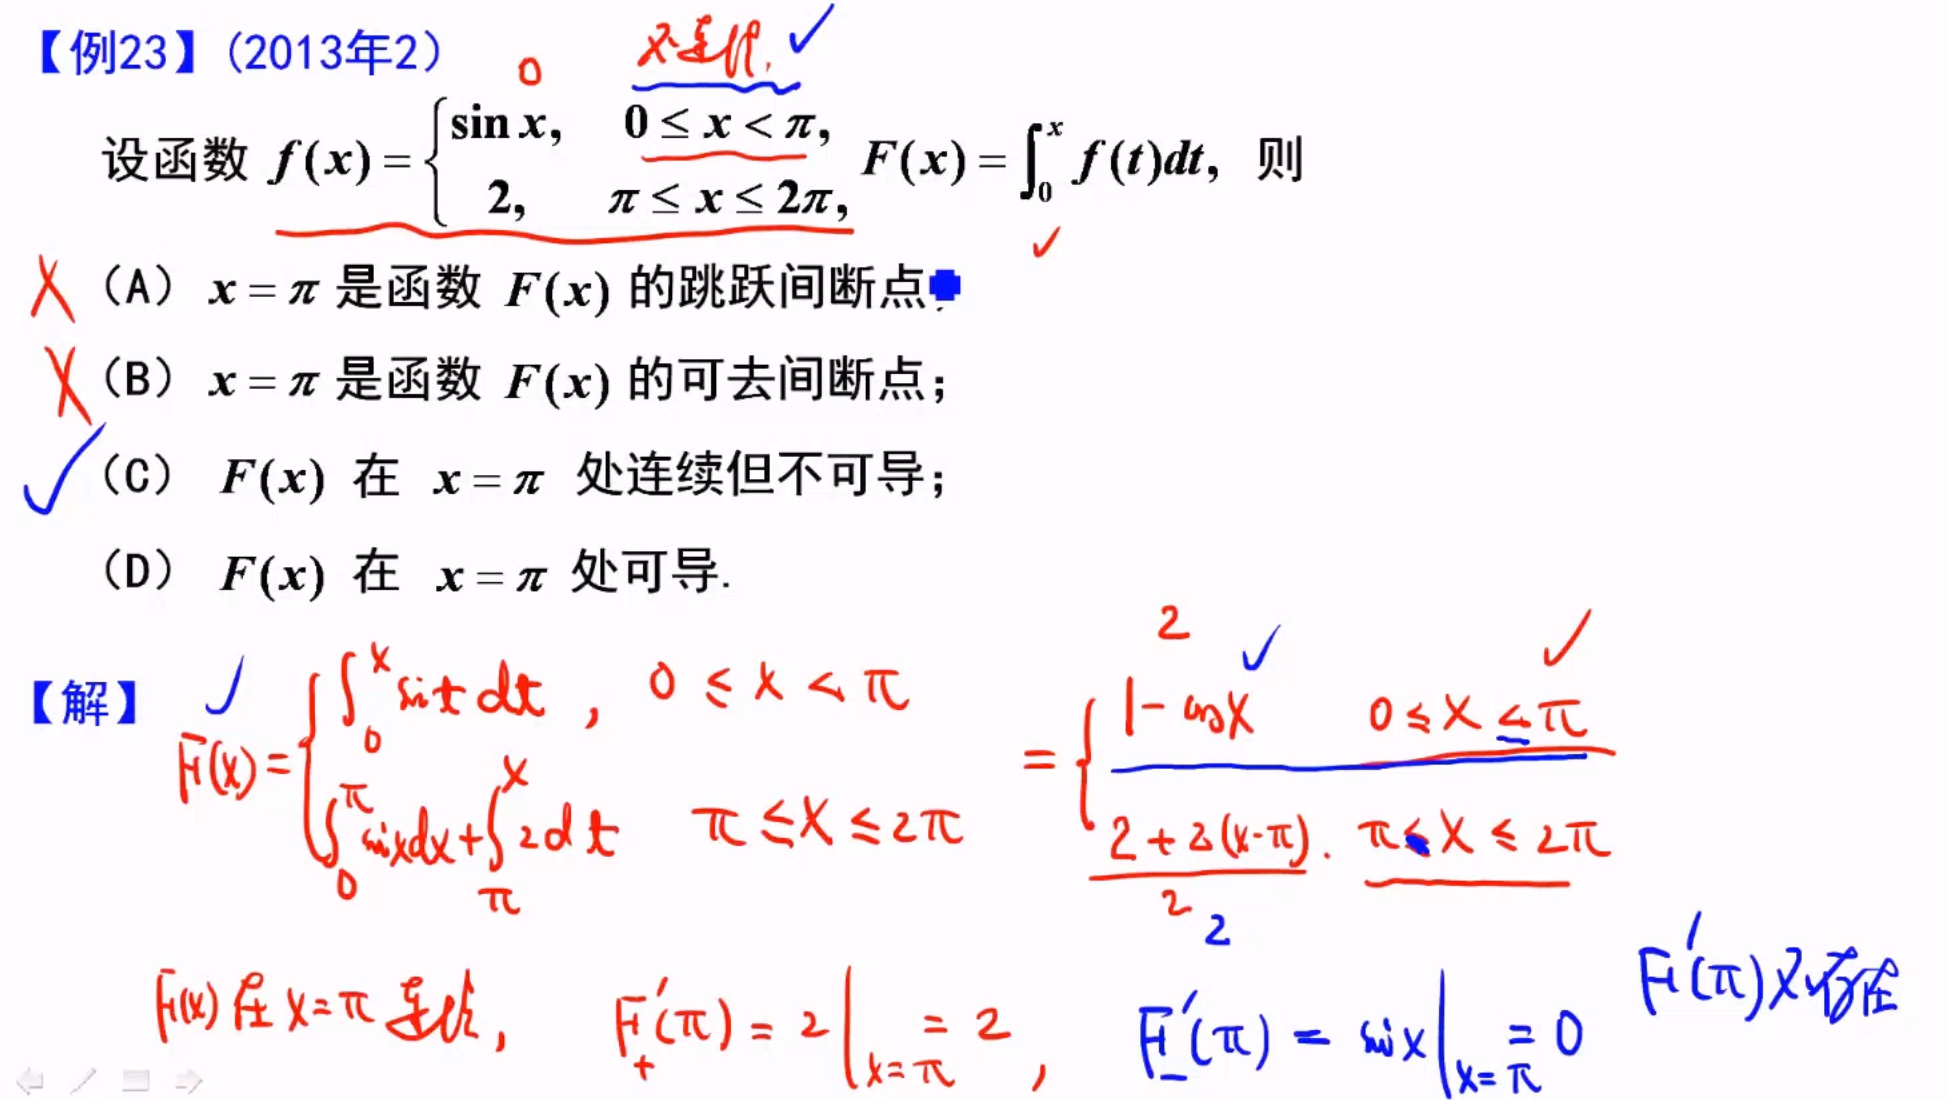 【例23】(2013年2)
0 不连续,
设函数 f(x) = { sin x, 0 ≤ x < π, 2, π ≤ x ≤ 2π, F(x) = ∫₀ˣ f(t)dt, 则
(A) x = π 是函数 F(x) 的跳跃间断点;
(B) x = π 是函数 F(x) 的可去间断点;
(C) F(x) 在 x = π 处连续但不可导;
(D) F(x) 在 x = π 处可导.
2
【解】 F(x) = { ∫₀ˣ sin t dt, 0 ≤ x < π
∫₀^π sin x dx + ∫_π^x 2 dt π ≤ x ≤ 2π
= { 1 - cos x 0 ≤ x ≤ π
2 + 2(x-π). π ≤ x ≤ 2π
2
2
F(x) 在 x = π 连续, F₊′(π) = 2 |ₓ₌π = 2, F₋′(π) = sin x |ₓ₌π = 0
F′(π) 不存在